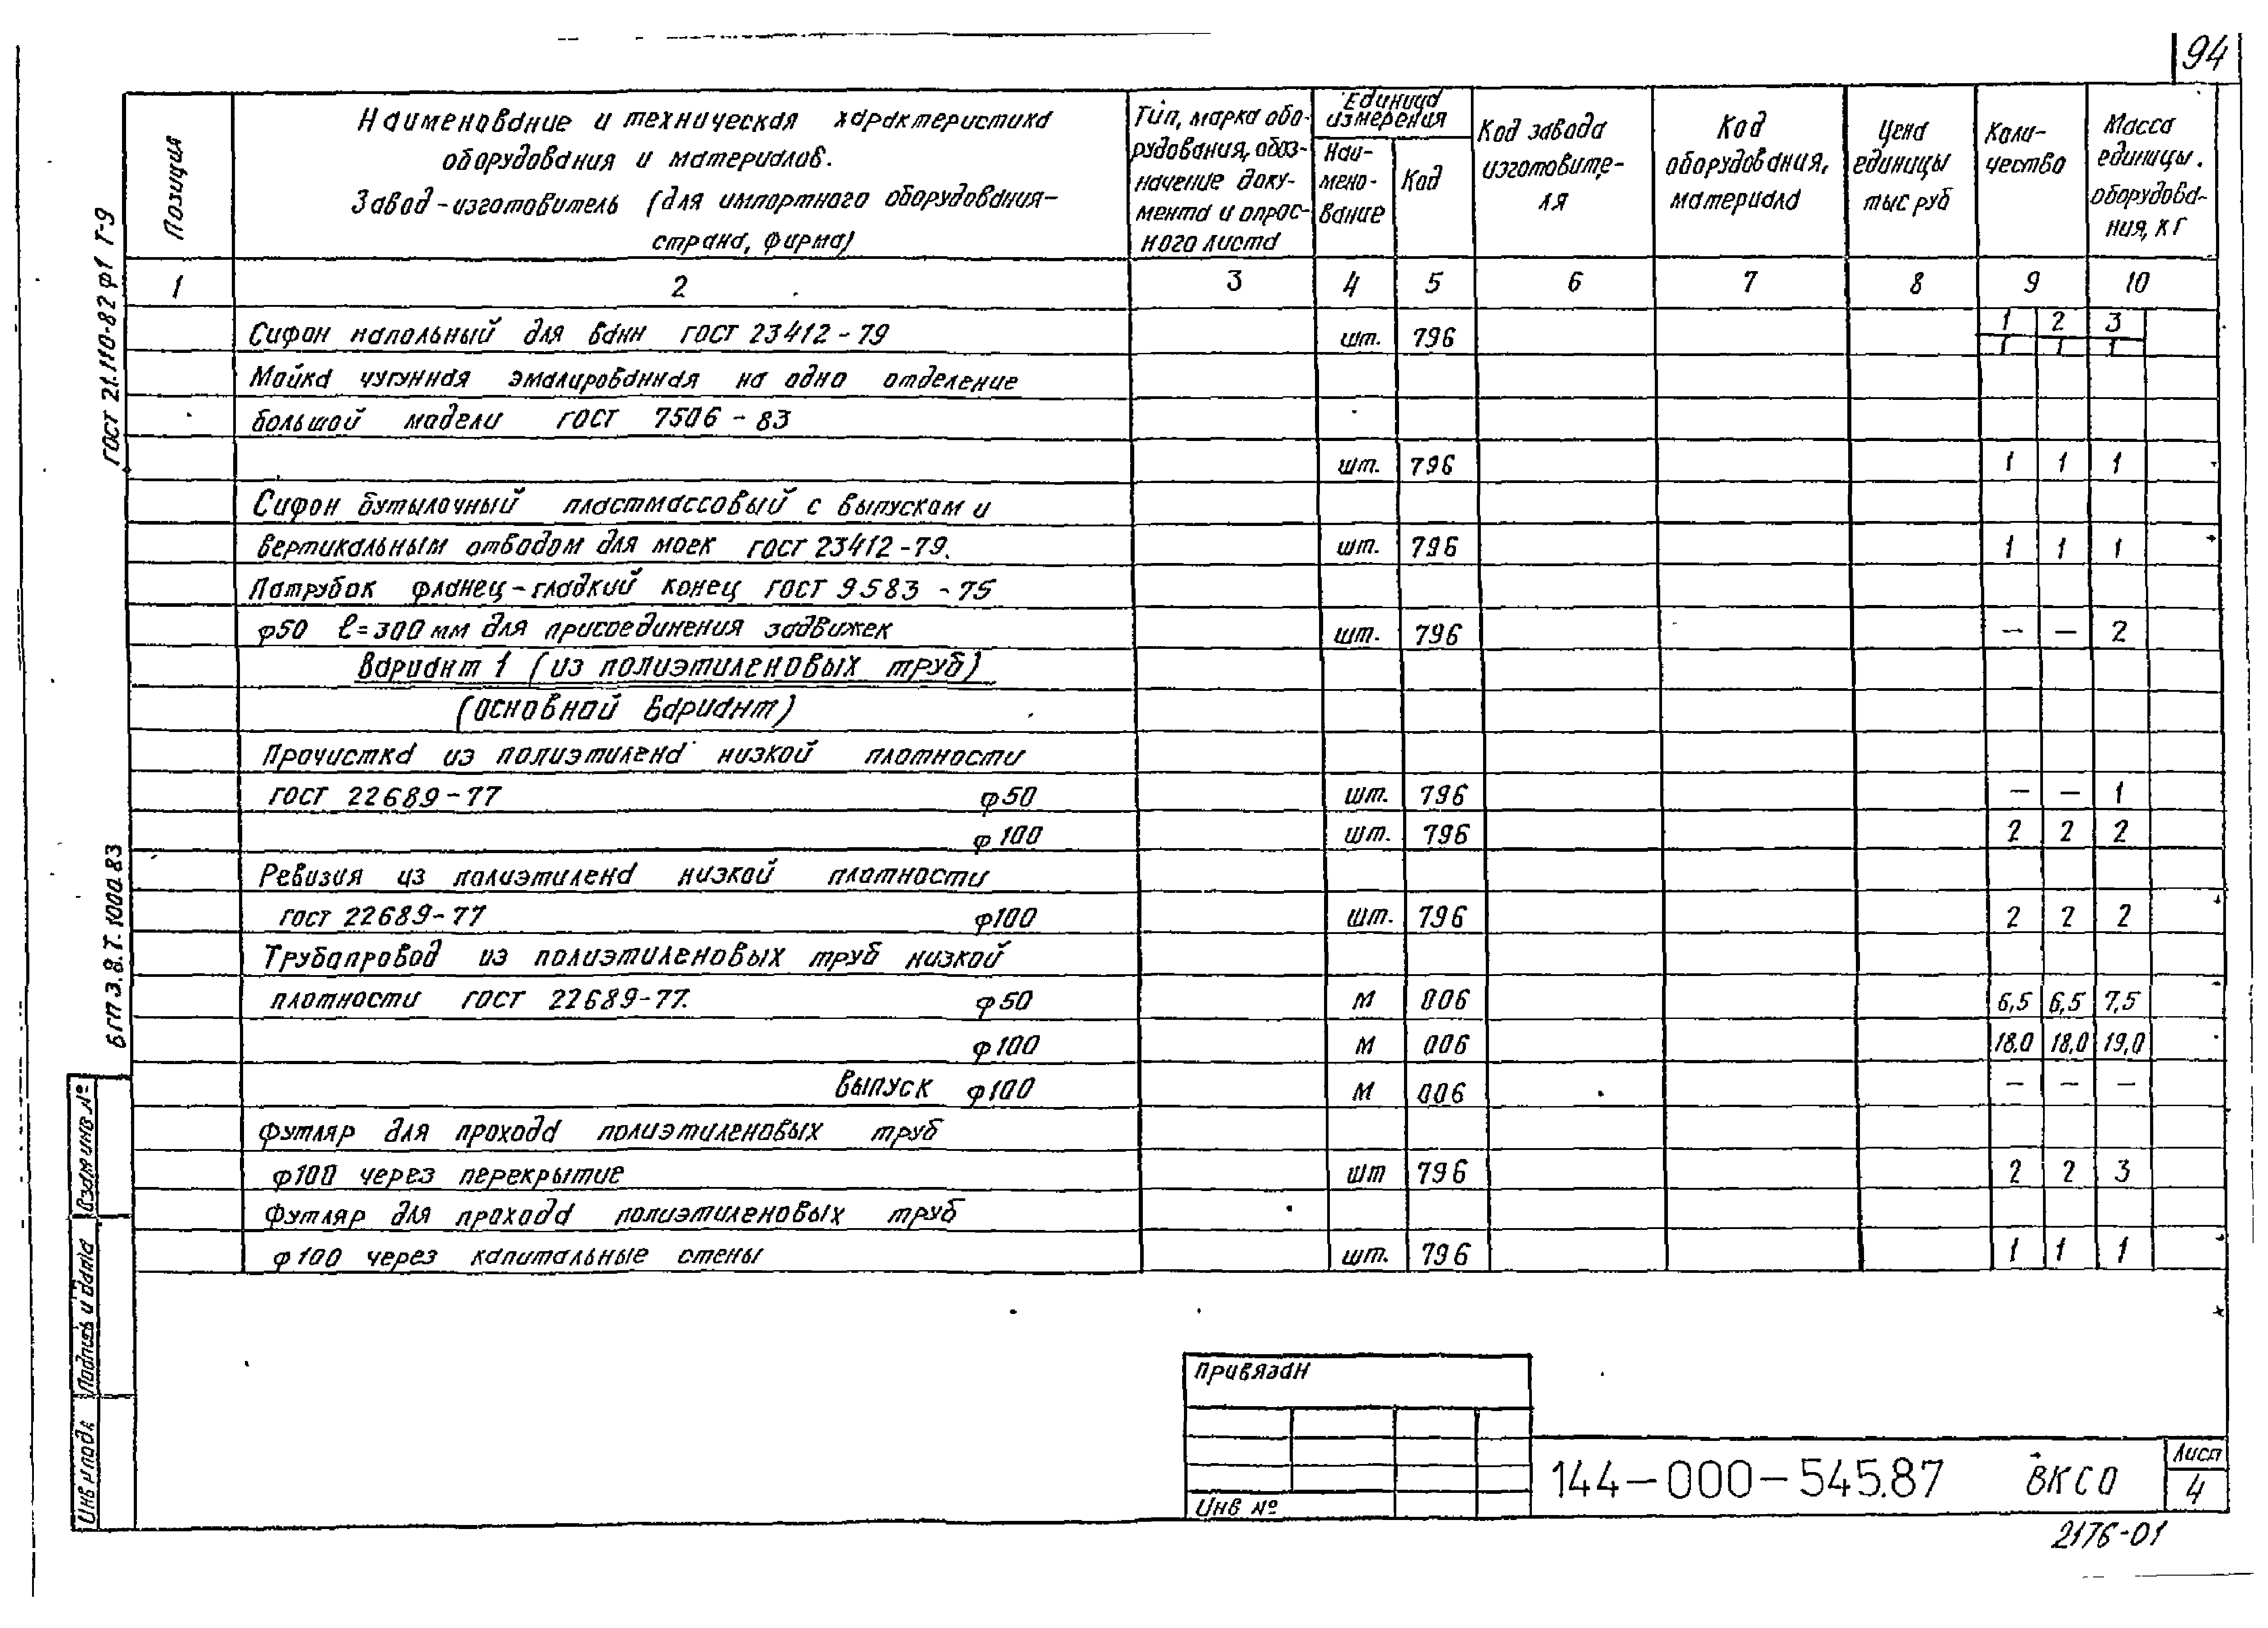 94
Позиция
Наименование и техническая характеристика
оборудования и материалов.
Завод-изготовитель (для импортного оборудования-
страна, фирма)
Тип, марка обо-
рудования, обоз-
начение доку-
мента и опрос-
ного листа
Единица
измерения
Наи-
мено-
вание
Код
Код завода
изготовите-
ля
Код
оборудования,
материала
Цена
единицы
тыс руб
Коли-
чество
Масса
единицы.
оборудова-
ния, кг
1 2 3 4 5 6 7 8 9 10
1 2 3
Сифон напольный для ванн ГОСТ 23412-79 шт. 796 1 1 1
Мойка чугунная эмалированная на одно отделение
большой модели ГОСТ 7506-83
шт. 796 1 1 1
Сифон бутылочный пластмассовый с выпуском и
вертикальным отводом для моек ГОСТ 23412-79. шт. 796 1 1 1
Патрубок фланец-гладкий конец ГОСТ 9583-75
φ50 ℓ=300 мм для присоединения задвижек шт. 796 — — 2
Вариант 1 (из полиэтиленовых труб)
(основной вариант)
Прочистка из полиэтилена низкой плотности
ГОСТ 22689-77 φ50 шт. 796 — — 1
φ100 шт. 796 2 2 2
Ревизия из полиэтилена низкой плотности
ГОСТ 22689-77 φ100 шт. 796 2 2 2
Трубопровод из полиэтиленовых труб низкой
плотности ГОСТ 22689-77. φ50 м 006 6,5 6,5 7,5
φ100 м 006 18.0 18,0 19,0
выпуск φ100 м 006 — — —
Футляр для прохода полиэтиленовых труб
φ100 через перекрытие шт 796 2 2 3
Футляр для прохода полиэтиленовых труб
φ100 через капитальные стены шт. 796 1 1 1
ГОСТ 21.110-82 ф1 Т-9
БГП З.8.Т.1000.83
Взам инв №
Подпись и дата
Инв № подл
Привязан
Инв №
144-000-545.87 ВКСО
Лист
4
2176-01